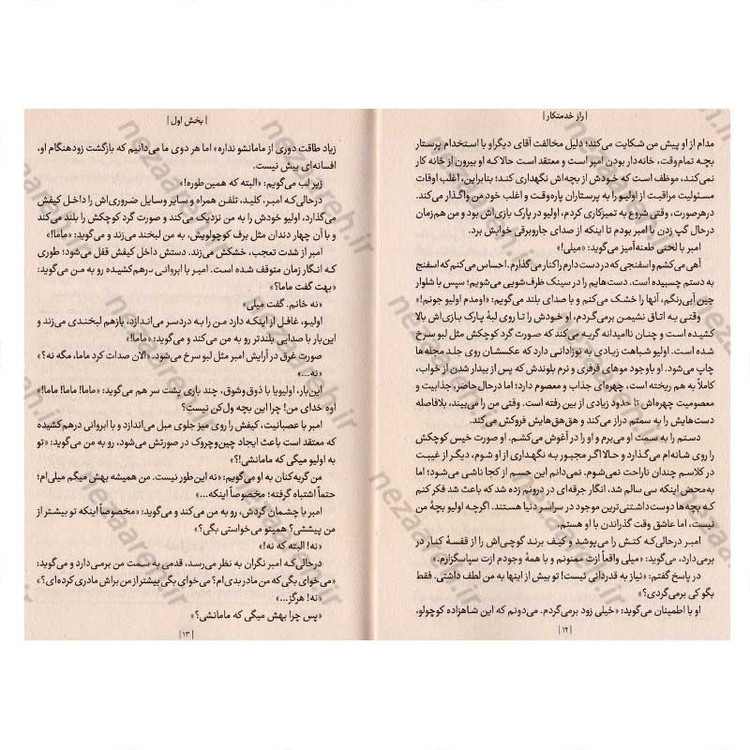 | راز خدمتکار |
مدام از او پیش من شکایت می‌کند؛ دلیل مخالفت آقای دیگراو با استخدام پرستار
بچه تمام‌وقت، خانه‌دار بودن امبر است و معتقد است حالا که او بیرون از خانه کار
نمی‌کند، موظف است که خودش از بچه‌اش نگهداری کند؛ بنابراین، اغلب اوقات
مسئولیت مراقبت از اولیو را به پرستاران پاره‌وقت و اغلب خود من واگذار می‌کند.
درهرصورت، وقتی شروع به تمیزکاری کردم، اولیو در پارک بازی‌اش بود و من هم‌زمان
درحال گپ زدن با امبر بودم تا اینکه از صدای جاروبرقی خوابش برد.
امبر با لحنی طعنه‌آمیز می‌گوید: «میلی!»
آهی می‌کشم و اسفنجی که در دست دارم را کنار می‌گذارم. احساس می‌کنم که اسفنج
به دستم چسبیده است. دست‌هایم را در سینک ظرف‌شویی می‌شویم؛ سپس با شلوار
جین آبی‌رنگم، آنها را خشک می‌کنم و با صدای بلند می‌گویم: «اومدم اولیو جونم!»
وقتی به اتاق نشیمن برمی‌گردم، او خودش را تا روی لبهٔ پارک بازی‌اش بالا
کشیده است و چنان ناامیدانه گریه می‌کند که صورت گرد کوچکش مثل لبو سرخ
شده است. اولیو شباهت زیادی به نوزادانی دارد که عکسشان روی جلد مجله‌ها
چاپ می‌شود. او باوجود موهای فرفری و نرم بلوندش که پس از بیدار شدن از خواب،
کاملاً به هم ریخته است، چهره‌ای جذاب و معصوم دارد؛ اما درحال‌حاضر، جذابیت و
معصومیت چهره‌اش تا حدود زیادی از بین رفته است. وقتی من را می‌بیند، بلافاصله
دست‌هایش را به سمتم دراز می‌کند و هق‌هق‌هایش فروکش می‌کند.
دستم را به سمت او می‌برم و او را در آغوش می‌کشم. او صورت خیس کوچکش
را روی شانه‌ام می‌گذارد و حالا اگر مجبور به نگهداری از او شوم، دیگر از غیبت
در کلاسم چندان ناراحت نمی‌شوم. نمی‌دانم این حسم از کجا ناشی می‌شود؛ اما
به‌محض اینکه سی سالم شد، انگار جرقه‌ای در درونم زده شد که باعث شد فکر کنم
که بچه‌ها دوست‌داشتنی‌ترین موجود در سراسر دنیا هستند. اگرچه اولیو بچهٔ من
نیست، اما عاشق وقت گذراندن با او هستم.
امبر درحالی‌که کتش را می‌پوشد و کیف برند گوچی‌اش را از قفسهٔ کنار در
برمی‌دارد، می‌گوید: «میلی واقعاً ازت ممنونم و با همهٔ وجودم ازت سپاسگزارم.»
در پاسخ گفتم: «نیاز به قدردانی نیست! تو بیش از اینها به من لطف داشتی. فقط
بگو کی برمی‌گردی؟»
او با اطمینان می‌گوید: «خیلی زود برمی‌گردم. می‌دونم که این شاهزاده کوچولو،
| ۱۲ |
| بخش اول |
زیاد طاقت دوری از مامانشو نداره» اما هر دوی ما می‌دانیم که بازگشت زودهنگام او،
افسانه‌ای بیش نیست.
زیر لب می‌گویم: «البته که همین‌طوره!»
درحالی‌که امبر، کلید، تلفن همراه و سایر وسایل ضروری‌اش را داخل کیفش
می‌گذارد، اولیو خودش را به من نزدیک می‌کند و صورت گرد کوچکش را بلند می‌کند
و با آن چهار دندان مثل برف کوچولویش، به من لبخند می‌زند و می‌گوید: «ماما!»
امبر از شدت تعجب، خشکش می‌زند. دستش داخل کیفش قفل می‌شود؛ طوری
که انگار زمان متوقف شده است. امبر با ابروانی درهم‌کشیده رو به من می‌گوید:
«بهت گفت ماما؟»
«نه خانم. گفت میلی.»
اولیو، غافل از اینکه دارد من را به دردسر می‌اندازد، بازهم لبخندی می‌زند و
این‌بار با صدایی بلندتر رو به من می‌کند و می‌گوید: «ماما!»
صورت غرق در آرایش امبر مثل لبو سرخ می‌شود. «الان صدات کرد ماما، مگه نه؟»
«نه...»
این‌بار، اولیویا با ذوق‌وشوق، چند بازی پشت سر هم می‌گوید: «ماما! ماما! ماما!»
اوه خدای من! چرا این بچه ول‌کن نیست؟
امبر با عصبانیت، کیفش را روی میز جلوی مبل می‌اندازد و با ابروانی درهم‌کشیده
که معتقد است باعث ایجاد چین‌وچروک در صورتش می‌شود، رو به من می‌گوید: «تو
به اولیو میگی که مامانشی!؟»
من گریه‌کنان به او می‌گویم: «نه این‌طور نیست. من همیشه بهش میگم میلی‌ام؛
حتماً اشتباه گرفته؛ مخصوصاً اینکه...»
امبر با چشمان گردش، رو به من می‌کند و می‌گوید: «مخصوصاً اینکه تو بیشتر از
من پیششی؟ همینو می‌خواستی بگی؟»
«نه! البته که نه!»
درحالی‌که امبر نگران به نظر می‌رسد، قدمی به سمت من برمی‌دارد و می‌گوید:
«می‌خوای بگی که من مادر بدی‌ام؟ می‌خوای بگی بیشتر از من براش مادری کرده‌ای؟»
«نه! هرگز...»
«پس چرا بهش میگی که مامانشی؟»
| ۱۳ |
nezaareh.ir